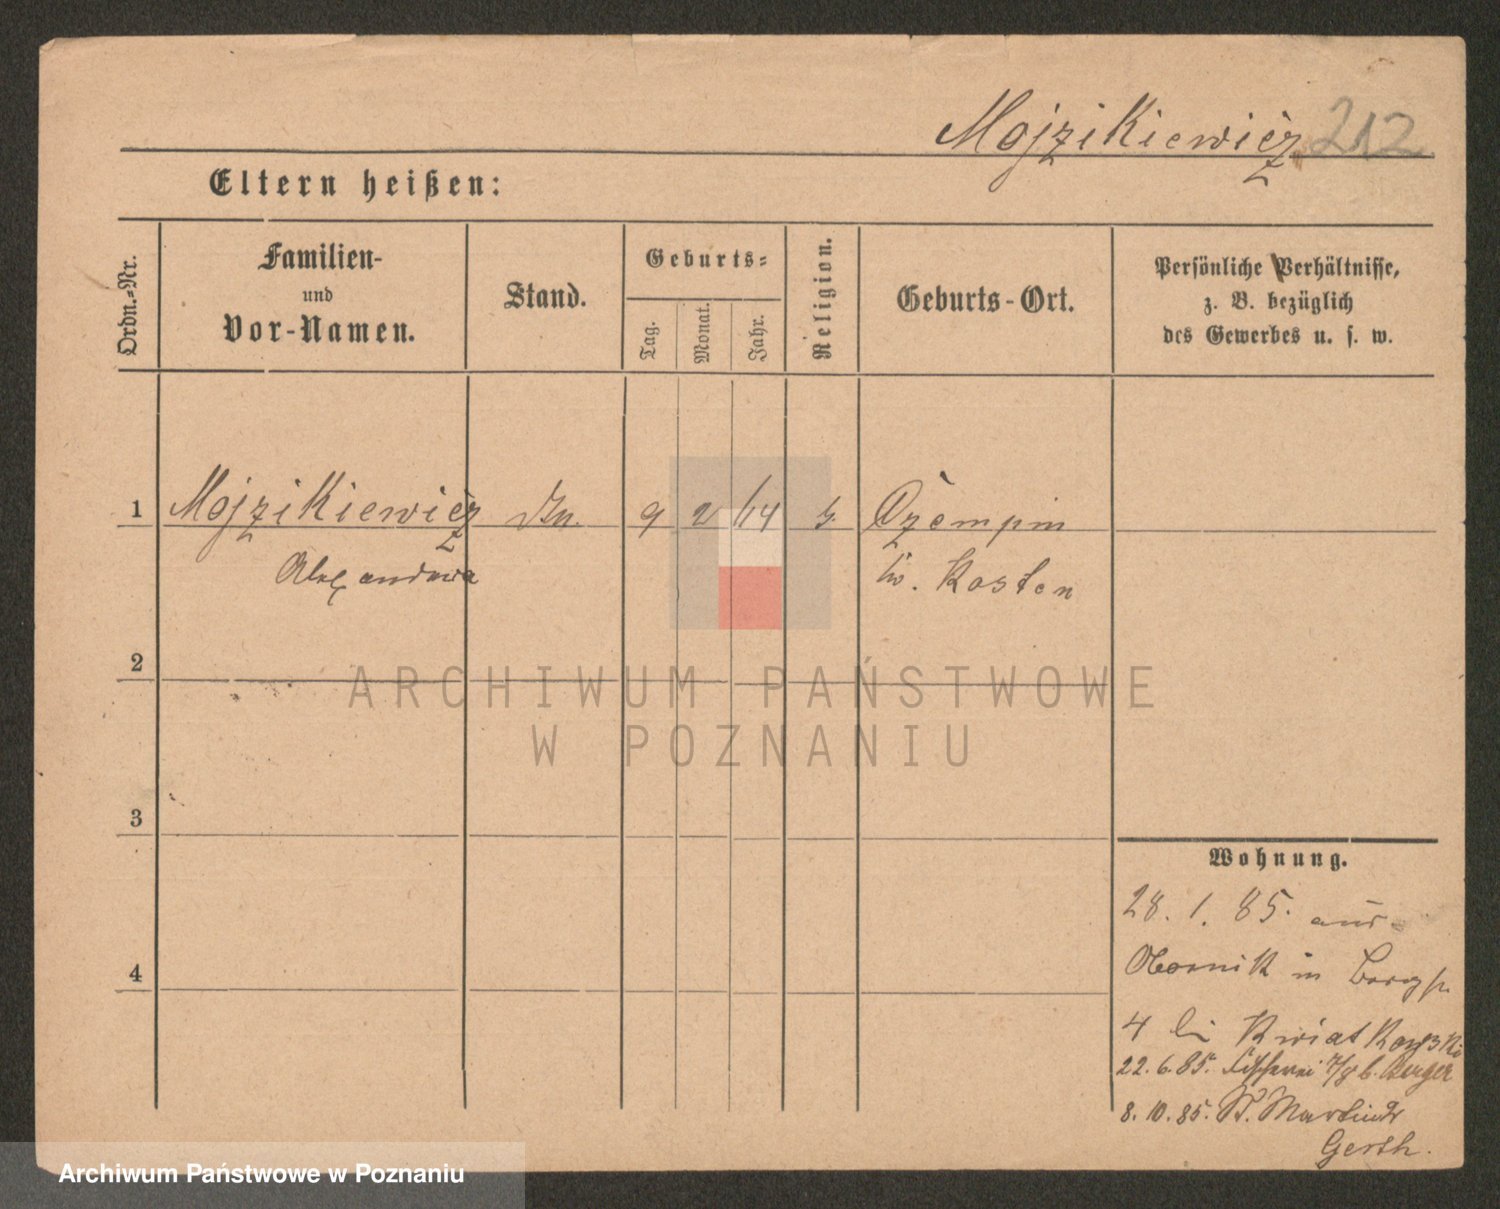 Mojzikiewicz 212
Eltern heißen:
Ordn.-Nr.
Familien-
und
Vor-Namen.
Stand.
Geburts-
Tag.
Monat.
Jahr.
Religion.
Geburts-Ort.
Persönliche Verhältnisse,
z. B. bezüglich
des Gewerbes u. s. w.
1 Mojzikiewicz 9 2 Czempin
Alexandra Kosten
2
ARCHIWUM PAŃSTWOWE
W POZNANIU
3
Wohnung.
28. 1. 85. aus
Obornik in Bergstr.
4
4 bei Kwiatkowski
22. 6. 85. Fischerei 7/8 b. Berger
8. 10. 85. St. Martin
Gerth.
Archiwum Państwowe w Poznaniu